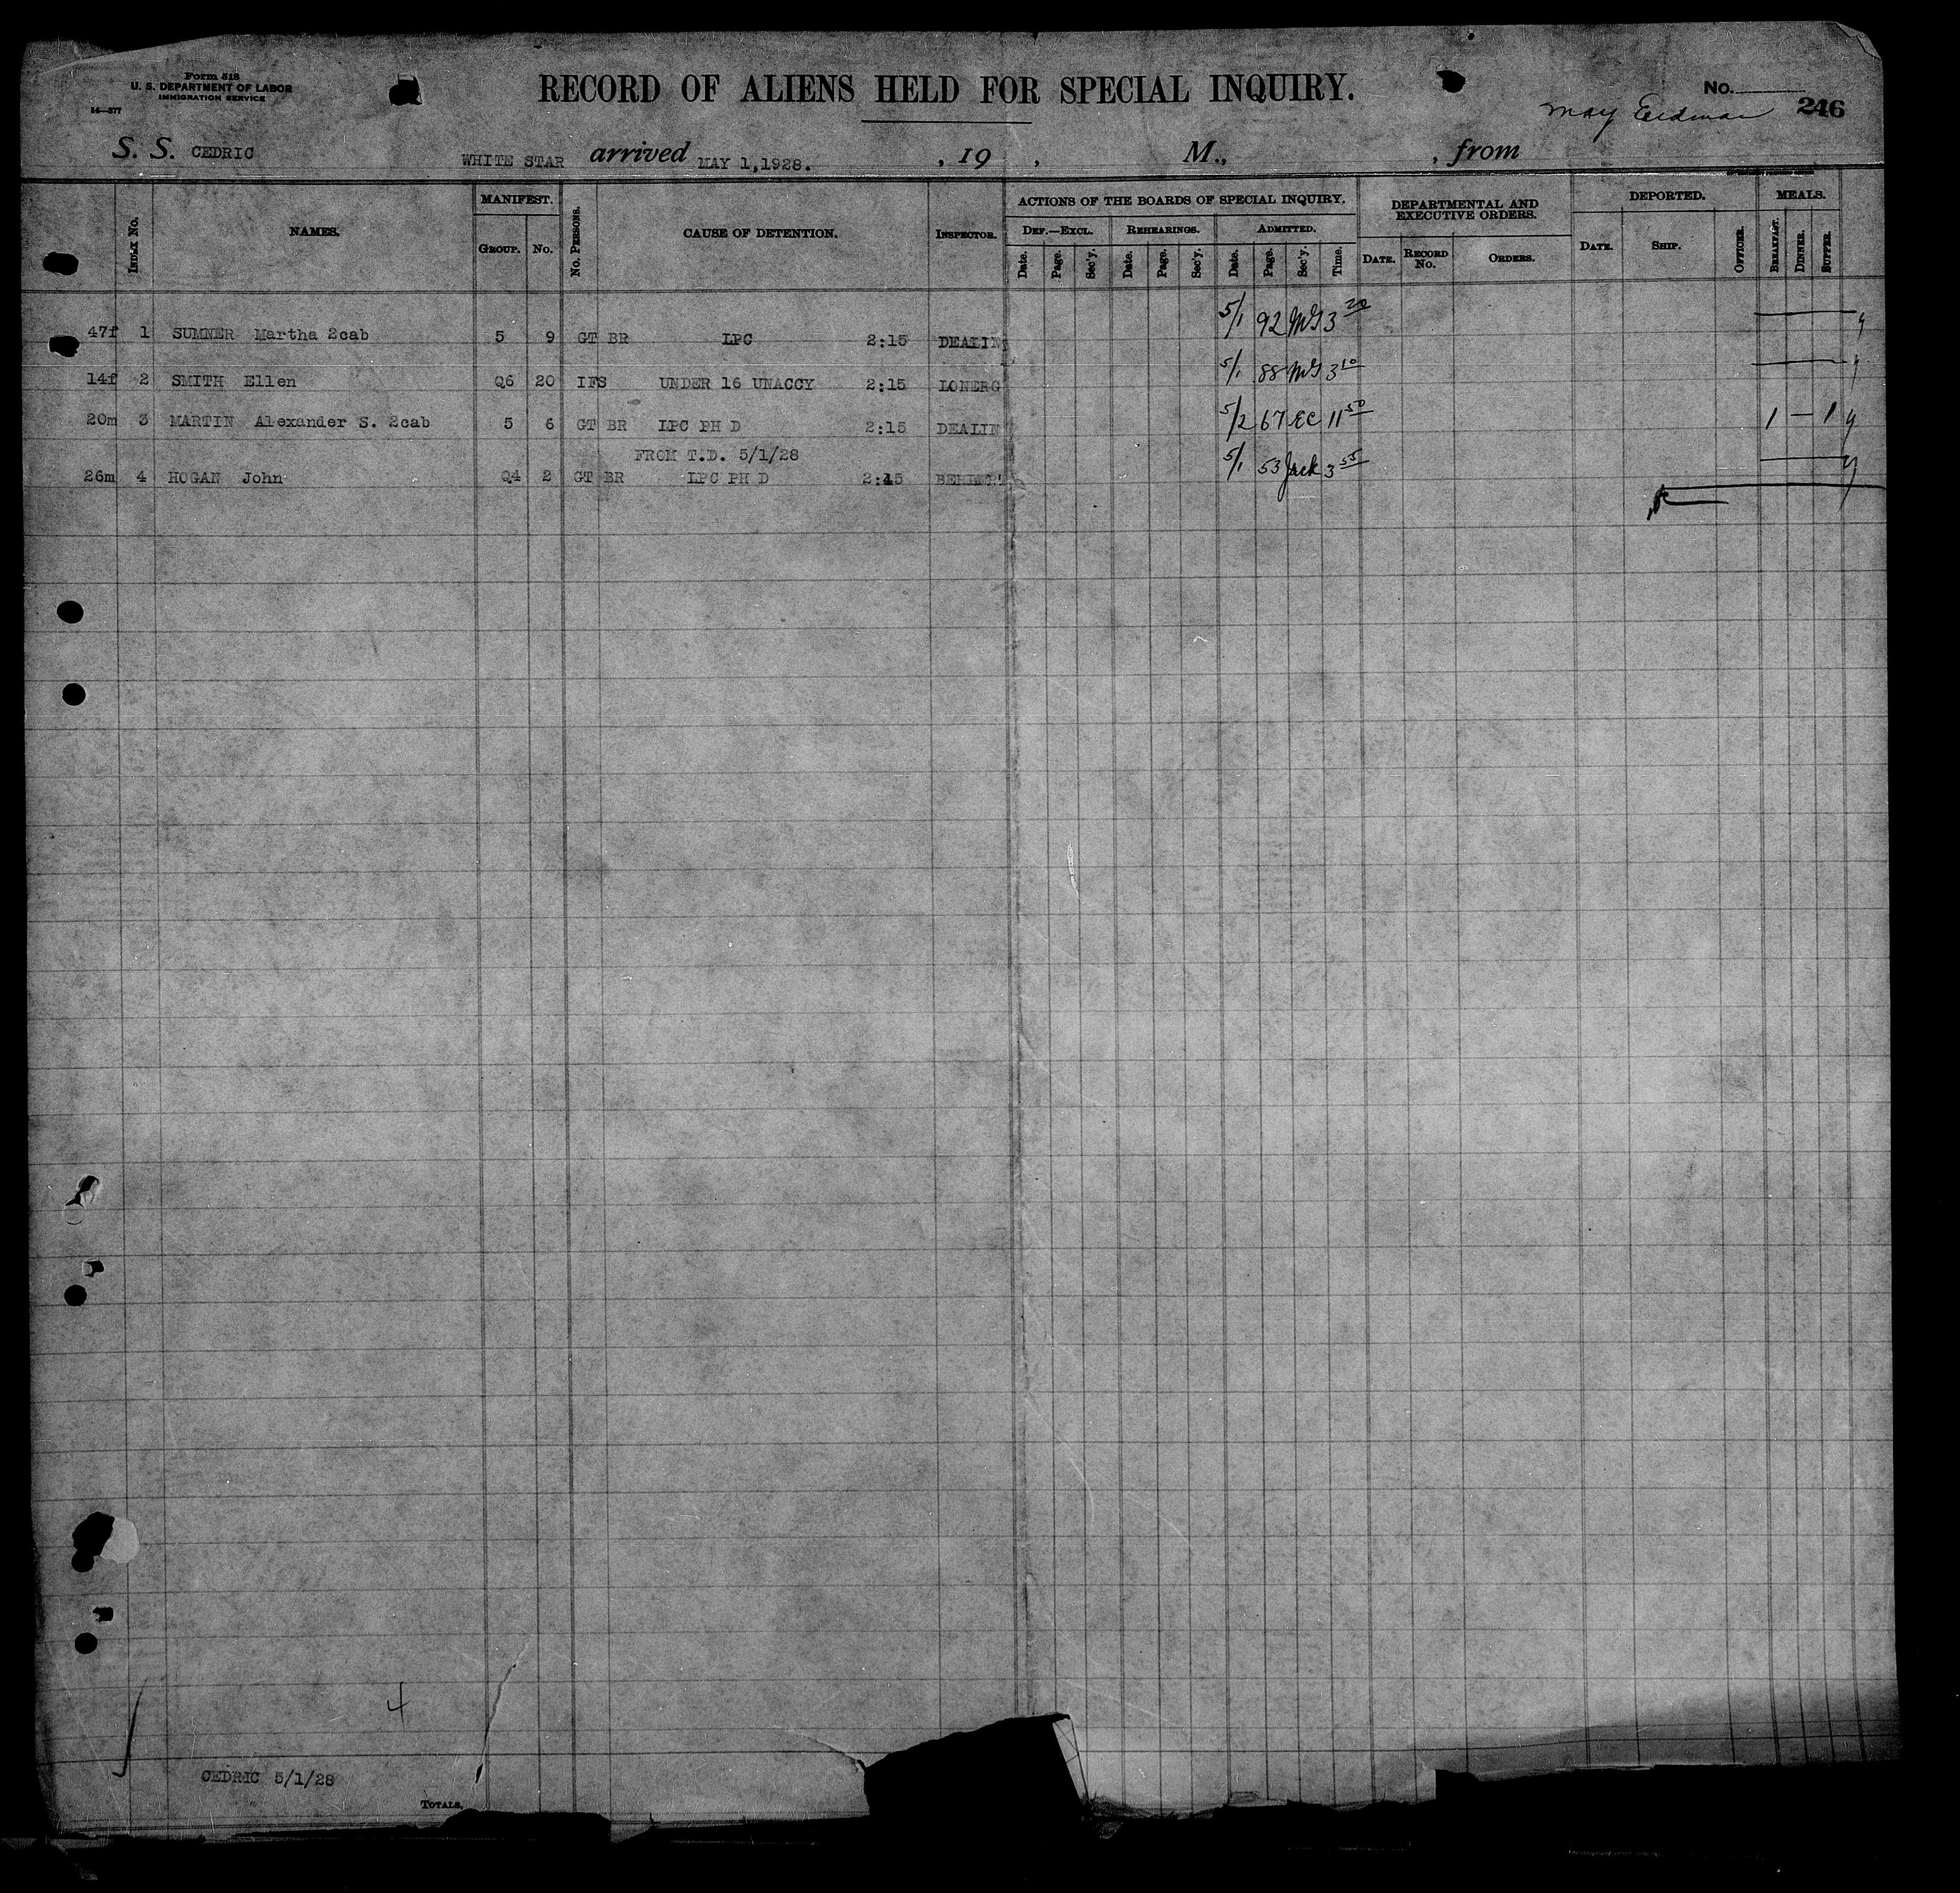 Form 518
U. S. DEPARTMENT OF LABOR
IMMIGRATION SERVICE
14—577
RECORD OF ALIENS HELD FOR SPECIAL INQUIRY.
No.
May 246
S. S. CEDRIC WHITE STAR arrived MAY 1,1928. , 19 , M., , from
INDEX No. NAMES. MANIFEST. GROUP. No. No. PERSONS. CAUSE OF DETENTION. INSPECTOR.
ACTIONS OF THE BOARDS OF SPECIAL INQUIRY. DEF.—EXCL. Date. Page. Sec'y. REHEARINGS. Date. Page. Sec'y. ADMITTED. Date. Page. Sec'y. Time.
DEPARTMENTAL AND EXECUTIVE ORDERS. DATE. RECORD No. ORDERS.
DEPORTED. DATE. SHIP. OFFICER. MEALS. BREAKFAST. DINNER. SUPPER.
47f 1 SUMNER Martha 2cab 5 9 GT BR LPC 2:15 DEALIN 5/1 92 MG 3 20
14f 2 SMITH Ellen Q6 20 IFS UNDER 16 UNACCY 2:15 LONERG 5/1 88 MG 3 10
20m 3 MARTIN Alexander S. 2cab 5 6 GT BR LPC PH D 2:15 DEALIN 5/2 67 EC 11 50 1 — 1
FROM T.D. 5/1/28
26m 4 HOGAN John Q4 2 GT BR LPC PH D 2:45 5/1 53 Jack 3 55
4
CEDRIC 5/1/28
TOTALS,